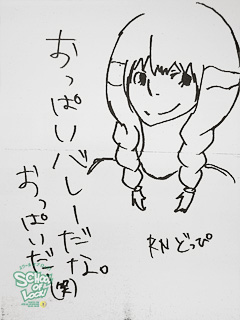 おっぱいバレーだな。
おっぱいだ(笑)
RNどっぴ
SCHOOL
OF
LOCK!